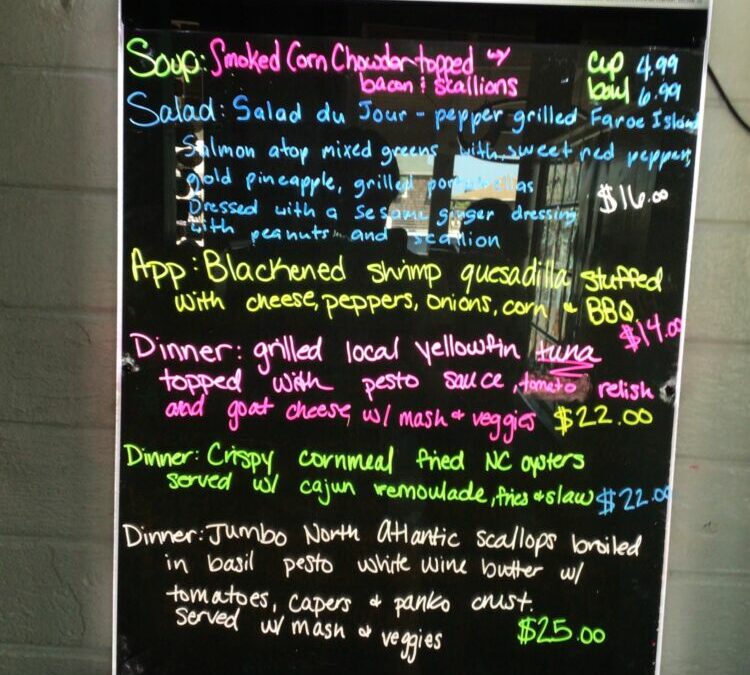 Soup: Smoked Corn Chowder topped w/ cup 4.99
bacon & stallions bowl 6.99
Salad: Salad du Jour - pepper grilled Faroe Island
Salmon atop mixed greens with sweet red peppers,
gold pineapple, grilled portabellas
$16.00
Dressed with a sesame ginger dressing
with peanuts and scallion
App: Blackened shrimp quesadilla stuffed
with cheese, peppers, onions, corn & BBQ
$14.00
Dinner: grilled local yellowfin tuna
topped with pesto sauce, tomato relish
and goat cheese, w/ mash & veggies $22.00
Dinner: Crispy cornmeal fried NC oysters
served w/ cajun remoulade, fries & slaw $22.00
Dinner: Jumbo North Atlantic scallops broiled
in basil pesto white wine butter w/
tomatoes, capers & panko crust.
served w/ mash & veggies $25.00